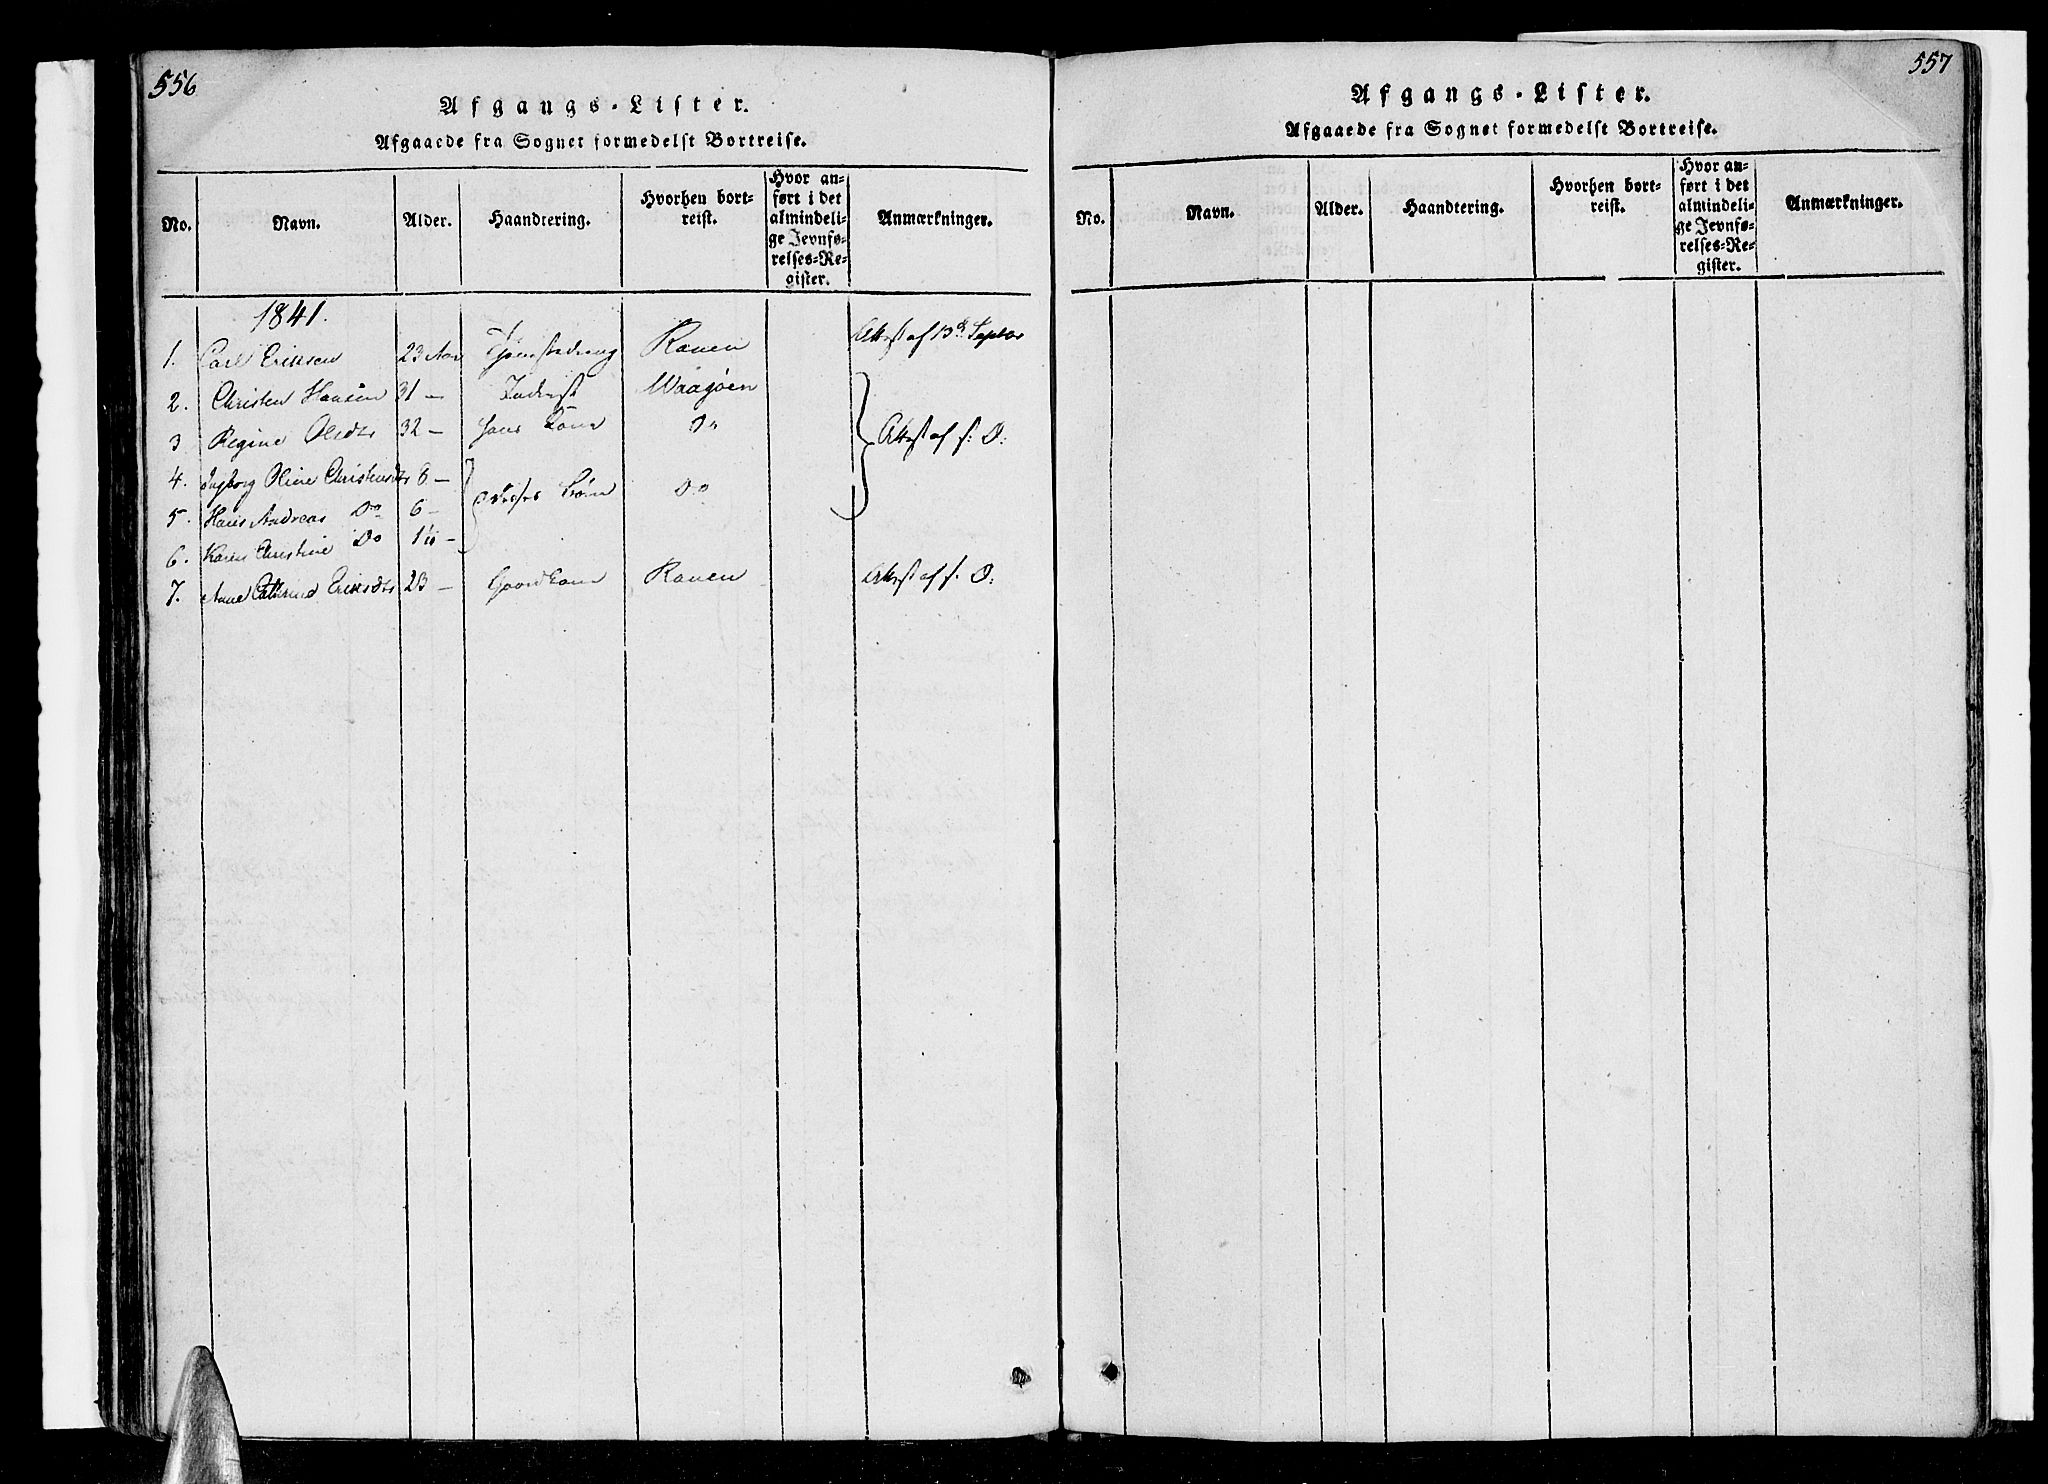 556
Afgangs-Lister.
Afgaaede fra Sognet formedelst Bortreise.
No. Navn. Alder. Haandtering. Hvorhen bortreist. Hvor anført i det almindelige Jevnførelses-Register. Anmærkninger.
1841.
1. Carl Eriksen 23 Aar Tjenestedreng Ranen Attest af 13de Septbr
2. Christen Hansen 31 — Inderst Waagøen
3 Regine Olsdtr 32 — hans Kone Do Attest af s: D:
4. Ingborg Oline Christensdtr 8 —
5. Hans Andreas Do 6 — Børn Do
6. Karen Christine Do
7. Anne Cathrine Eriksdtr 23 — Ranen Attest af s. D:
557
Afgangs-Lister.
Afgaaede fra Sognet formedelst Bortreise.
No. Navn. Alder. Haandtering. Hvorhen bortreist. Hvor anført i det almindelige Jevnførelses-Register. Anmærkninger.